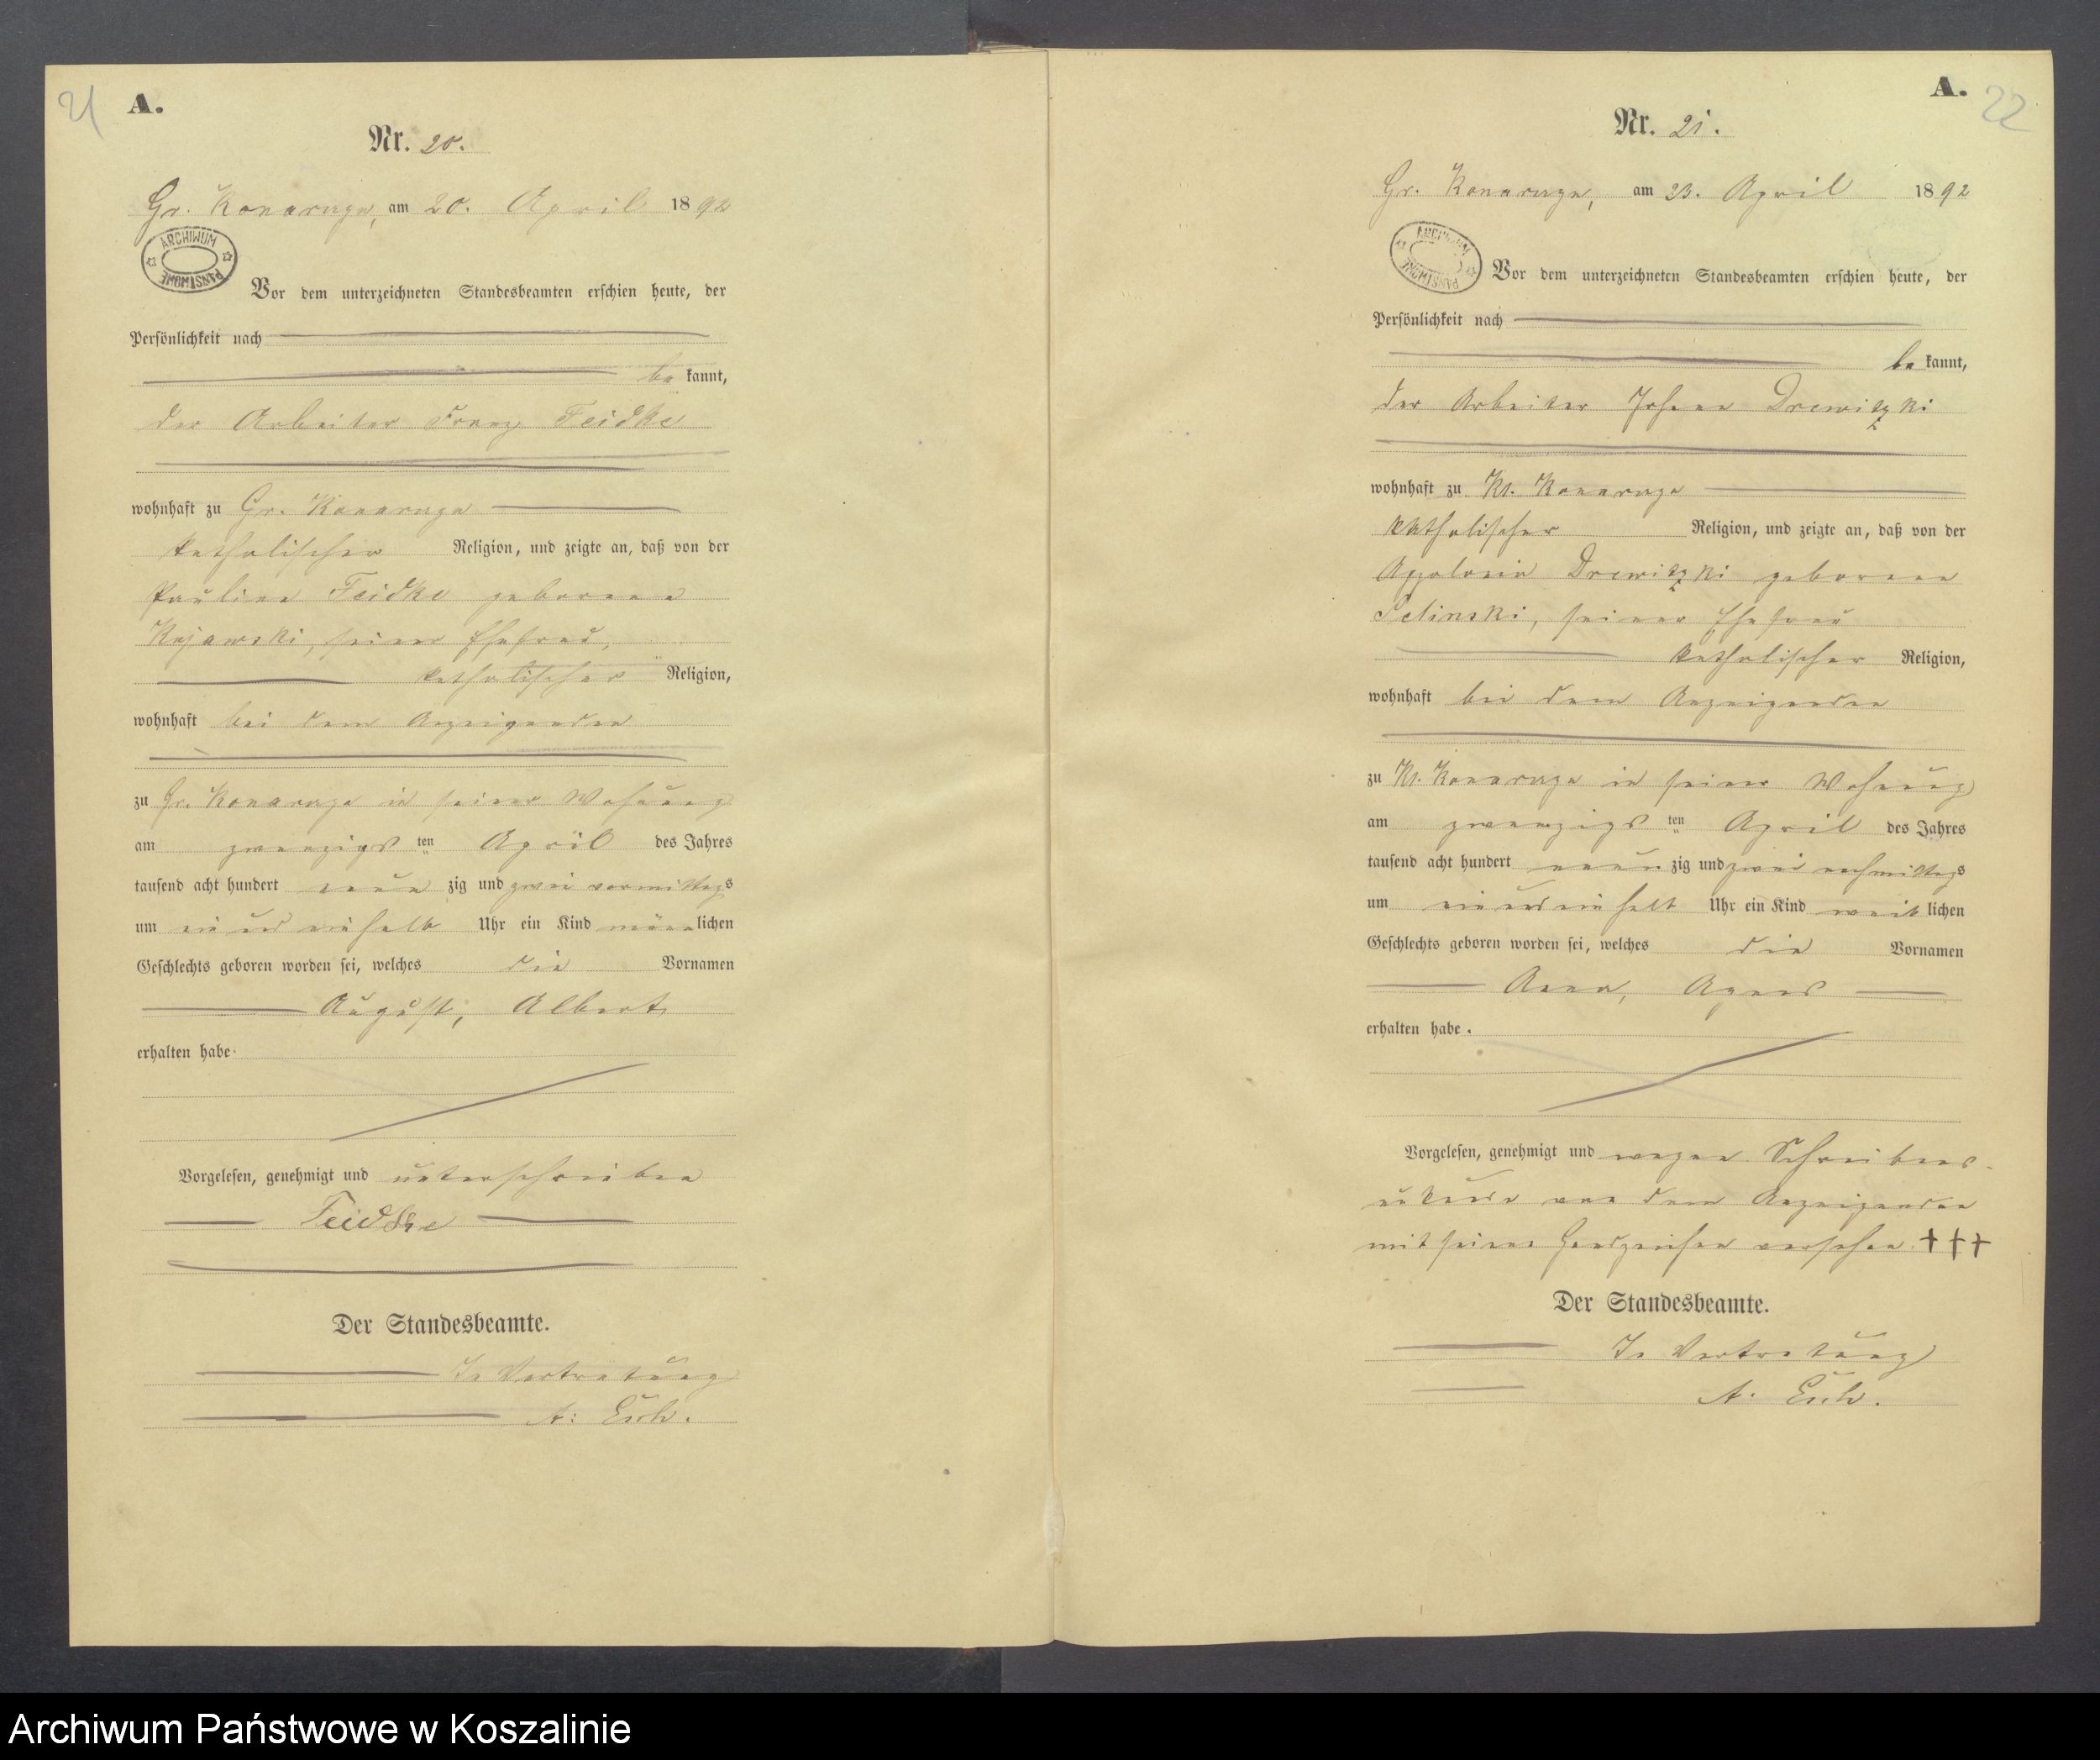 21
A.
Nr. 20.
Gr. Konarczyn, am 20. April 1892
ARCHIWUM PAŃSTWOWE
Vor dem unterzeichneten Standesbeamten erschien heute, der
Persönlichkeit nach
be kannt,
der Arbeiter Franz Feidke
wohnhaft zu Gr. Konarczyn
katholischer Religion, und zeigte an, daß von der
Pauline Feidke geborene
Kujawski, seiner Ehefrau,
katholischer Religion,
wohnhaft bei dem Anzeigenden
zu Gr. Konarczyn in seiner Wohnung
am zwanzigs ten April des Jahres
tausend acht hundert neun zig und zwei vormittags
um ein und ein halb Uhr ein Kind männlichen
Geschlechts geboren worden sei, welches die Vornamen
August, Albert
erhalten habe.
Vorgelesen, genehmigt und unterschrieben
Feidke
Der Standesbeamte.
In Vertretung
A.
22
Nr. 21.
Gr. Konarczyn, am 23. April 1892
ARCHIWUM PAŃSTWOWE
Vor dem unterzeichneten Standesbeamten erschien heute, der
Persönlichkeit nach
be kannt,
der Arbeiter Johann Drewitzki
wohnhaft zu Kl. Konarczyn
katholischer Religion, und zeigte an, daß von der
Apolonia Drewitzki geborene
Selinski, seiner Ehefrau
katholischer Religion,
wohnhaft bei dem Anzeigenden
zu Kl. Konarczyn in seiner Wohnung
am zwanzigs ten April des Jahres
tausend acht hundert neun zig und zwei nachmittags
um ein und ein halb Uhr ein Kind weib lichen
Geschlechts geboren worden sei, welches die Vornamen
Anna, Agnes
erhalten habe.
Vorgelesen, genehmigt und wegen Schreibens-
unkunde von dem Anzeigenden
mit seinem Handzeichen versehen. +++
Der Standesbeamte.
In Vertretung
Archiwum Państwowe w Koszalinie